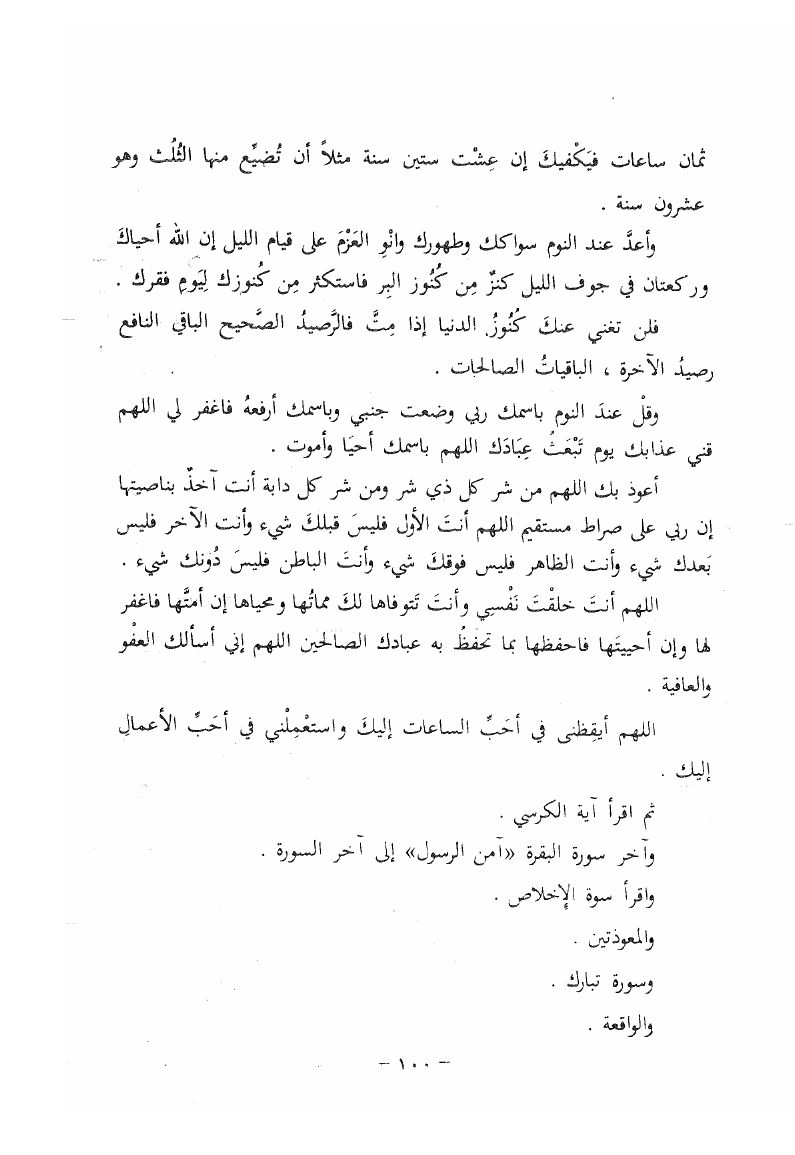 ثمان ساعات فيَكْفيكَ إن عِشْت ستين سنة مثلاً أن تُضيِّع منها الثُلُث وهو
عشرون سنة .
وأعدَّ عند النوم سواكك وطهورك وانْوِ العَزْمَ على قيام الليل إن الله أحياكَ
وركعتان في جوف الليل كنزٌ مِن كُنُوز البِر فاستكثر مِن كُنوزك لِيَومِ فقرك .
فلن تغني عنكَ كُنُوزُ الدنيا إذا مِتَّ فالرَّصيدُ الصَّحيح الباقي النافع
رصيدُ الآخرة ، الباقياتُ الصالحات .
وقلْ عندَ النوم باسمك ربي وضعت جنبي وباسمك أرفعهُ فاغفر لي اللهم
قني عذابك يوم تَبْعَثُ عِبَادَك اللهم باسمك أحيَا وأموت .
أعوذ بك اللهم من شر كل ذي شر ومن شر كل دابة أنت آخذٌ بناصيتها
إن ربي على صراط مستقيم اللهم أنتَ الأول فليسَ قبلكَ شيء وأنت الآخر فليس
بَعدك شيء وأنت الظاهر فليس فوقكَ شيء وأنتَ الباطن فليسَ دُونك شيء .
اللهم أنتَ خلقْتَ نَفْسِي وأنتَ تَتوفاها لكَ مماتُها ومحياها إن أمتَّها فاغفر
لها وإن أحييتَها فاحفظها بما تحفظُ به عبادك الصالحين اللهم إني أسألك العفْو
والعافية .
اللهم أيقِظنى في أحَبِّ الساعات إليكَ واستعْمِلْني في أحَبِّ الأعمالِ
إليك .
ثم اقرأ آية الكرسي .
وآخر سورة البقرة «آمن الرسول» إلى آخر السورة .
واقرأ سوة الإِخلاص .
والمعوذتين .
وسورة تبارك .
والواقعة .
– ١٠٠ –